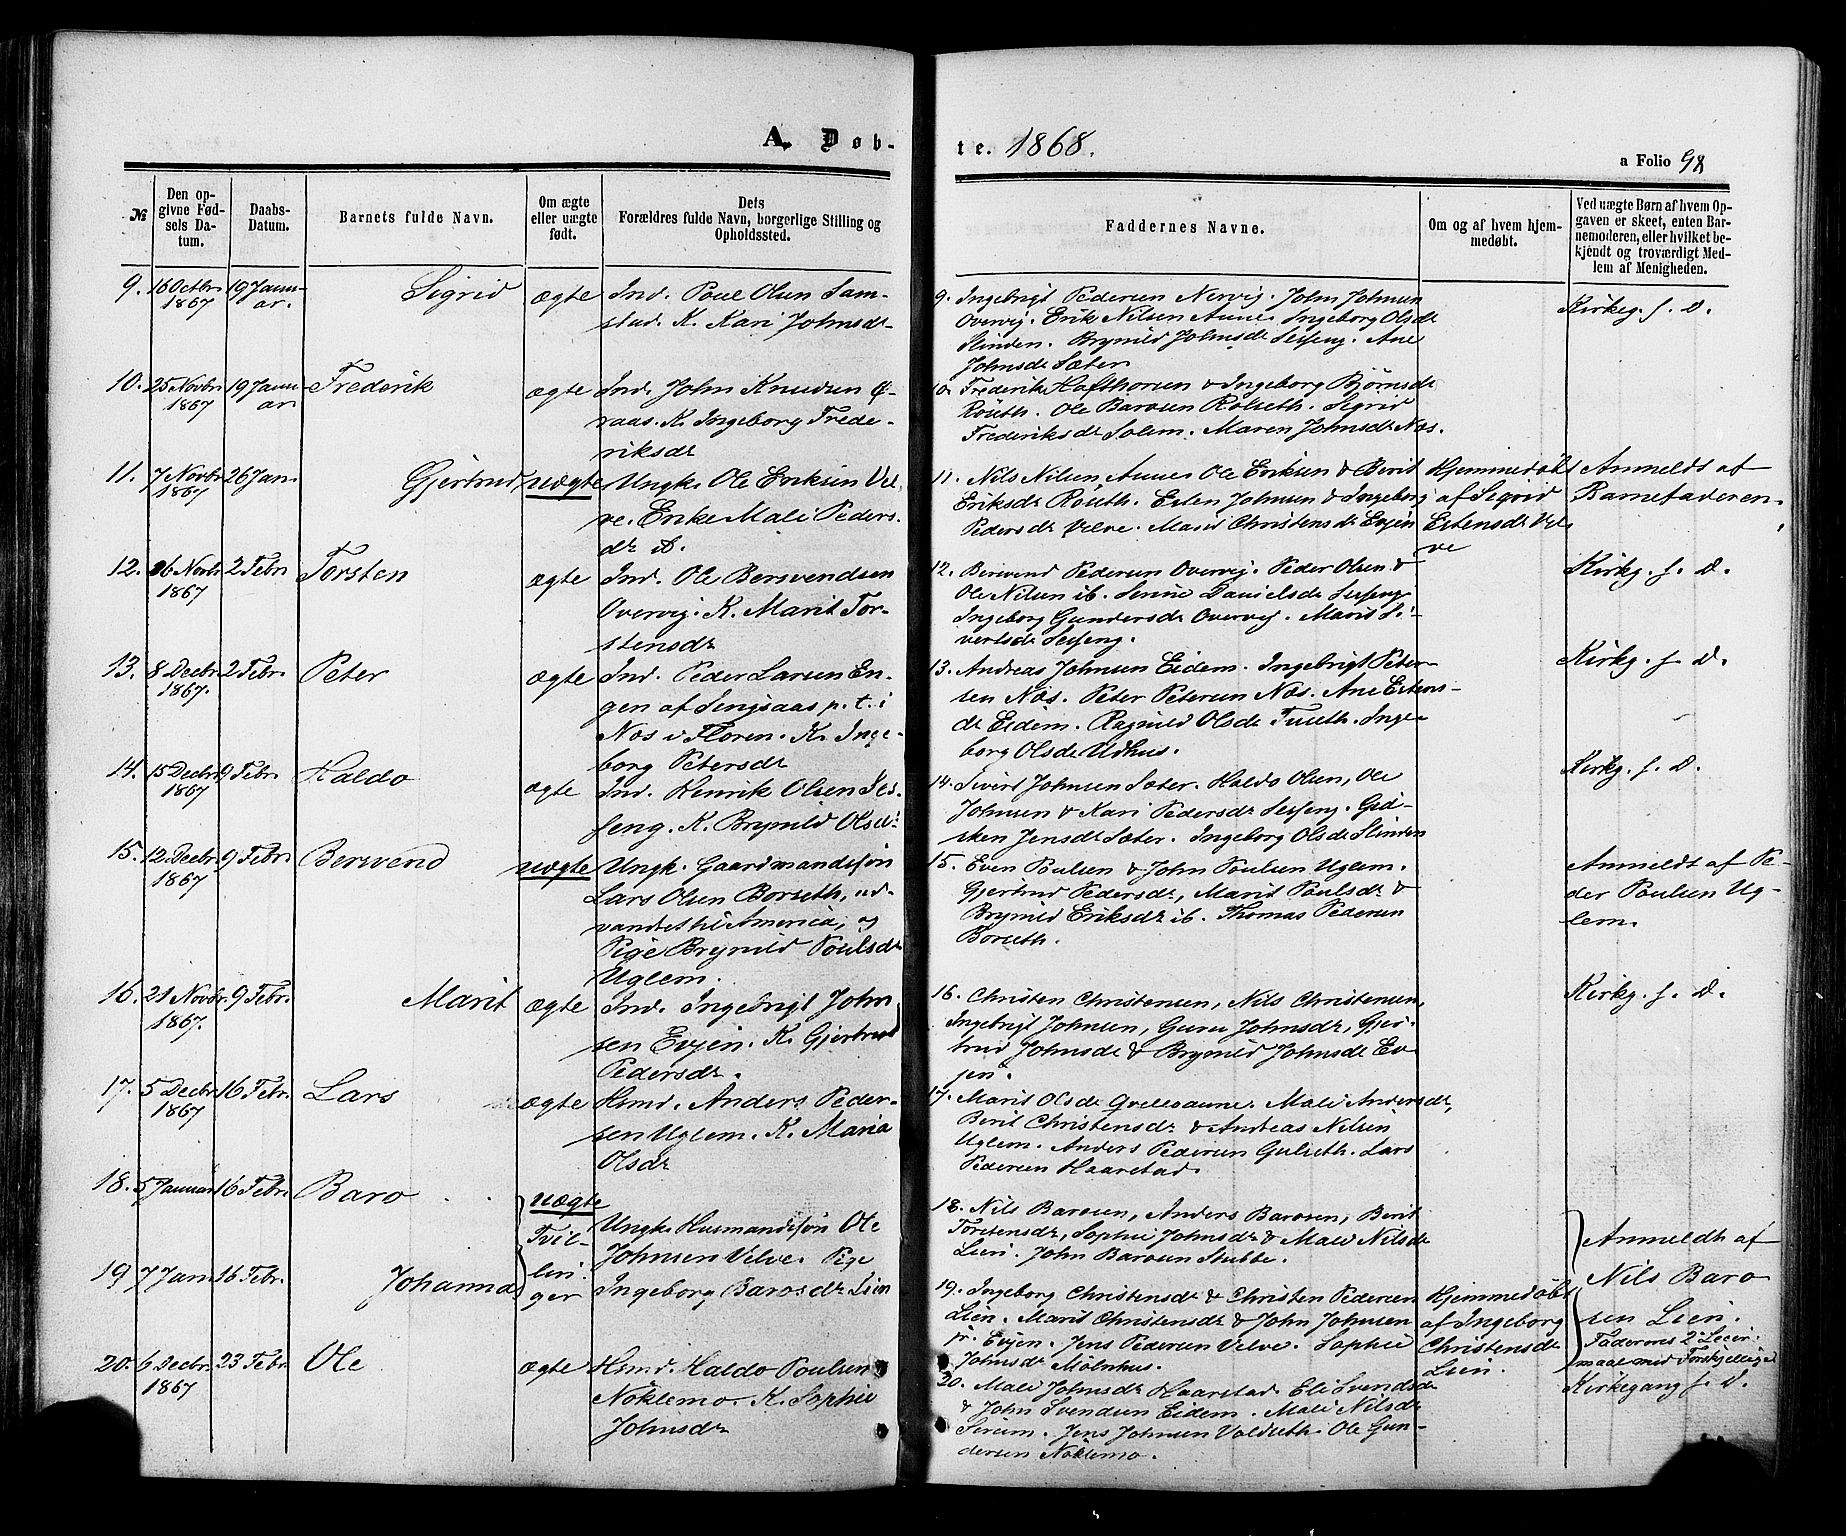 A. Døb-
te. 1868.
a Folio 98
№
Den op-
givne Fød-
sels Da-
tum.
Daabs-
Datum.
Barnets fulde Navn.
Om ægte
eller uægte
født.
Dets
Forældres fulde Navn, borgerlige Stilling og
Opholdssted.
Faddernes Navne.
Om og af hvem hjem-
medøbt.
Ved uægte Børn af hvem Op-
gaven er skeet, enten Bar-
nemoderen, eller hvilket be-
kjendt og troværdigt Med-
lem af Menigheden.
9. 16 Octbr 1867 19 Janu-
ar.
Sigrid
ægte
Ind. Poul Olsen Sam-
stad. K. Kari Johnsdr
9. Ingebrigt Pedersen Nervig. John Johnsen
Overvig. Erik Nilsen Aune. Ingeborg Olsdr
Slinden. Brynild Johnsdr Sesseng. Ane
Johnsdr Sæter
Kirkeg. f. D.
10. 25 Novbr 1867 19 Janu-
ar
Frederik
ægte
Ind. John Knudsen
aas. K. Ingeborg Frede-
riksdr
10. Frederik Hafthorsen & Ingeborg Bjørnsdr
Røseth. Ole Barosen Rolseth. Sigrid
Frederiksdr Solem. Maren Johnsdr Næs.
11. 7 Novbr 1867 26 Jan.
Gjertrud
uægte
Ungk. Ole Eriksen Vel-
ve. Enke Mali Peders-
dr ib.
11. Nils Nilsen Aune. Ole Eriksen & Berit
Eriksdr Røseth. Esten Johnsen & Ingeborg
Pedersdr Velve. Marit Christensdr Evjen
Hjemmedøbt
af Sigrid
Estensdr Vel
ve
Anmeldt af
Barnefaderen
12. 26 Novbr 1867 2 Febr
Torsten
ægte
Ind. Ole Bersvendsen
Overvig. K. Marit Tor-
stensdr
12. Bersvend Pedersen Overvig. Peder Olsen &
Ole Nilsen ib. Serine Danielsdr Sesseng
Ingeborg Gundersdr Overvig. Marit Si-
vertsdr Sesseng.
Kirkg. f. D.
13. 8 Decbr 1867. 2 Febr.
Peter
ægte
Ind. Peder Larsen En-
gen af Singsaas p. t. i
Næs i Floren. K. Inge-
borg Petersdr
13. Andreas Johnsen Eidem. Ingebrigt Peter-
sen Næs. Peter Petersen Næs. Ane Estens-
dr Eidem. Ragnild Olsdr Fuseth. Inge-
borg Olsdr Udhus.
Kirkg. f. D.
14. 15 Decbr 1867 9 Febr.
Haldo
ægte
Ind. Henrik Olsen Ses-
seng. K. Brynild Olsdr
14. Sivert Johnsen Sæter. Haldo Olsen, Ole
Johnsen & Kari Pedersdr Sesseng. Gid-
sken Jensdr Sæter. Ingeborg Olsdr Slinden
Kirkg. f. D.
15. 12. Decbr 1867 9 Febr
Bersvend
uægte
Ungk. Gaardmandssøn
Lars Olsen Borseth, ud-
vandret til America, og
Pige Brynild Poulsdr
Uglem.
15. Even Poulsen & John Poulsen Uglem.
Gjertrud Pedersdr, Marit Poulsdr &
Brynild Eriksdr ib. Thomas Pedersen
Borseth.
Anmeldt af Pe-
der Poulsen Ug-
lem.
16. 21 Novbr. 1867. 9 Febr.
Marit
ægte
Ind. Ingebrigt John
sen Evjen. K. Gjertrud
Pedersdr.
16. Christen Christensen, Nils Christensen,
Ingebrigt Johnsen, Guru Johnsdr, Gjer-
trud Johnsdr & Brynild Johnsdr Ev-
jen.
Kirkg. f. D.
17. 5 Decbr 1867 16 Febr.
Lars
ægte
Hsmd. Anders Peder-
sen Uglem. K. Maria
Olsdr
17. Marit Olsdr Qvellosaune. Mali Andersdr,
Berit Christensdr & Andreas Nilsen
Uglem. Anders Pedersen Gulseth. Lars
Pedersen Haarstad.
18. 5 Januar 16 Febr.
Baro
uægte
Tvil-
lin-
ger
Ungk. Husmandssøn Ole
Johnsen Velve. Pige
Ingeborg Barosdr Lien
18. Nils Barosen, Anders Barosen, Berit
Torstensdr, Sophie Johnsdr & Mali Nilsdr
Lien. John Barosen Stubbe.
Anmeldt af
Nils Baro
sen Lien.
Faderens 2det Leier-
maal med Forskjellige
19 7 Jan 16 Febr.
Johanna
19. Ingeborg Christensdr & Christen Pedersen
Lien. Marit Christensdr & John Johnsen
jr. Evjen. Jens Pedersen Velve. Sophie
Johnsdr Mølnhus.
Hjemmedøbt
af Ingeborg
Christensdr
Lien.
20. 6 Decbr 1867 23 Febr
Ole
ægte
Hsmd. Haldo Poulsen
Nøklemo. K. Sophie
Johnsdr
20. Mali Johnsdr Haarstad. Eli Svendsdr
& John Svendsen Eidem. Mali Nilsdr
Sirum. Jens Johnsen Valseth. Ole Gun-
dersen Nøklemo.
Kirkegang f. D.